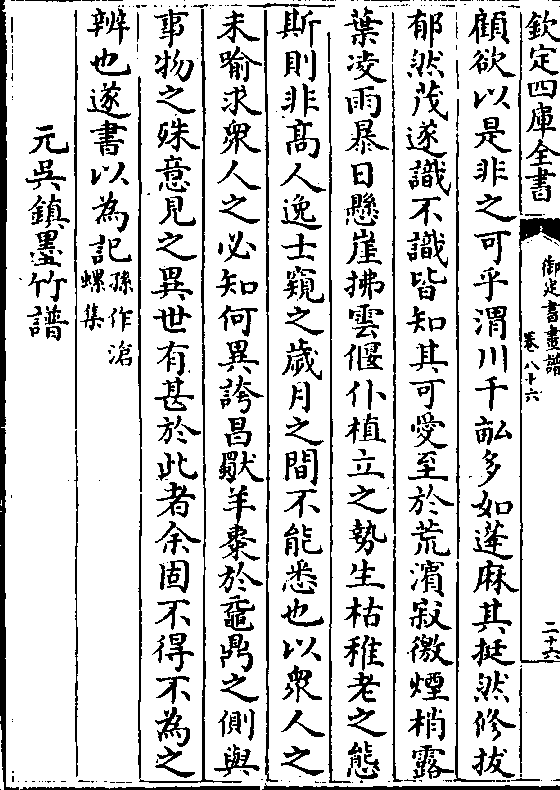 欽定四庫全書
御定書畫譜
卷八十六
二十六
顧欲以是非之可乎渭川千畝多如蓬麻其挺然修拔
郁然茂遂識不識皆知其可愛至於荒濱寂徼煙梢露
葉凌雨暴日懸崖拂雲偃仆植立之勢生枯稚老之態
斯則非髙人逸士窺之嵗月之間不能悉也以衆人之
未喻求衆人之必知何異誇昌歜羊棗於鼋鼎之側與
事物之殊意見之異世有甚於此者余固不得不為之
辨也遂書以為記孫作滄
螺集
元吳鎮墨竹譜